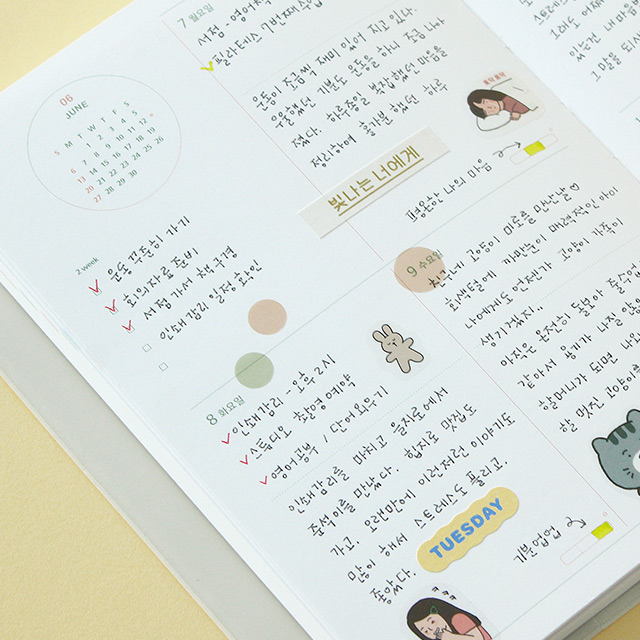 06
JUNE
S M T W T F S
1 2 3 4 5
6 7 8 9 10 11 12
13 14 15 16 17 18 19
20 21 22 23 24 25 26
27 28 29 30
2 week
운동 꾸준히 가기
회의자료 준비
서점 가서 책 구경
인쇄 감리 일정 확인
7 월요일
서점 - 영어
필라테스 7번째 수업
운동이 조금씩 재미 있어 지고 있다.
우울했던 기분도 운동을 하니 조금 나아
졌다. 하루종일 복잡했던 마음을
정리하며 홀가분 했던 하루
토닥토닥
빛나는 너에게
평온한 나의 마음
8 화요일
인쇄감리 - 오후 2시
스튜디오 촬영 예약
영어공부 / 단어 외우기
인쇄감리를 마치고 을지로에서
준석이를 만났다. 힙지로 맛집도
가고. 오랜만에 이런저런 이야기도
많이 해서 스트레스도 풀리고.
좋았다.
TUESDAY
기분업업
9 수요일
고양이 미로를 만난날♡
회색털에 까만눈이 매력적인 아이
나에게도 언젠가 고양이 가족이
생기겠지..
아직은 온전히 돌봐야
같아서 용기가 나질 않
할머니가 되면 나도
할 멋진 고양이를
스트레스
그마도 어제
있는건 내마음
그 말을 되새